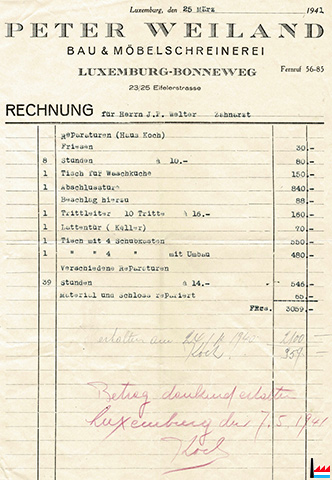 Luxemburg, den 25 März 1941
PETER WEILAND
BAU & MÖBELSCHREINEREI
LUXEMBURG-BONNEWEG Fernruf 56-85
23/25 Eifelerstrasse
RECHNUNG für Herrn J.P. Welter Zahnarzt
Reparaturen (Haus Koch)
Friesen 30.-
8 Stunden à 10.- 80.-
1 Tisch für Waschküche 150.-
1 Abschlusstüre 840.-
Beschlag hierzu 88.-
1 Trittleiter 10 Tritte à 16.- 160.-
1 Lattentür ( Keller) 70.-
1 Tisch mit 4 Schubkasten 550.-
1 " " 4 " mit Umbau 480.-
Verschiedene Reparaturen
39 Stunden à 14.- 546.-
Material und Schloss repariert 65.-
FRcs. 3059.-
erhalten am 1940 2700
Koch 359
Betrag dankend erhalten
Luxemburg den 7.5.1941
Koch